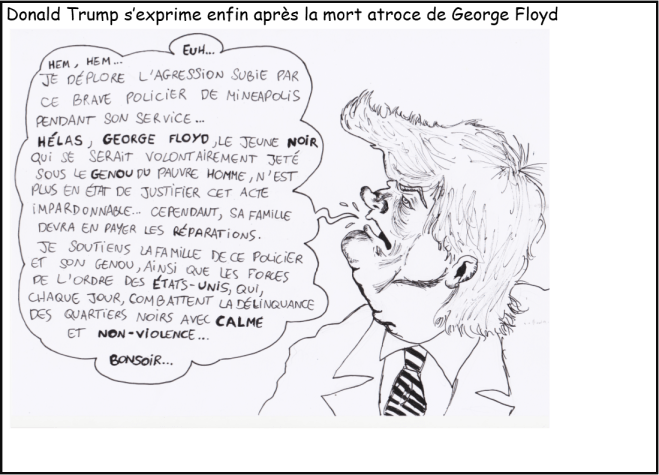 Donald Trump s'exprime enfin après la mort atroce de George Floyd
EUH...
HEM, HEM...
JE DÉPLORE L'AGRESSION SUBIE PAR
CE BRAVE POLICIER DE MINEAPOLIS
PENDANT SON SERVICE...
HÉLAS, GEORGE FLOYD, LE JEUNE NOIR
QUI SE SERAIT VOLONTAIREMENT JETÉ
SOUS LE GENOU DU PAUVRE HOMME, N'EST
PLUS EN ÉTAT DE JUSTIFIER CET ACTE
IMPARDONNABLE... CEPENDANT, SA FAMILLE
DEVRA EN PAYER LES RÉPARATIONS.
JE SOUTIENS LA FAMILLE DE CE POLICIER
ET SON GENOU, AINSI QUE LES FORCES
DE L'ORDRE DES ÉTATS-UNIS, QUI,
CHAQUE JOUR, COMBATTENT LA DÉLINQUANCE
DES QUARTIERS NOIRS AVEC CALME
ET NON-VIOLENCE...
BONSOIR...